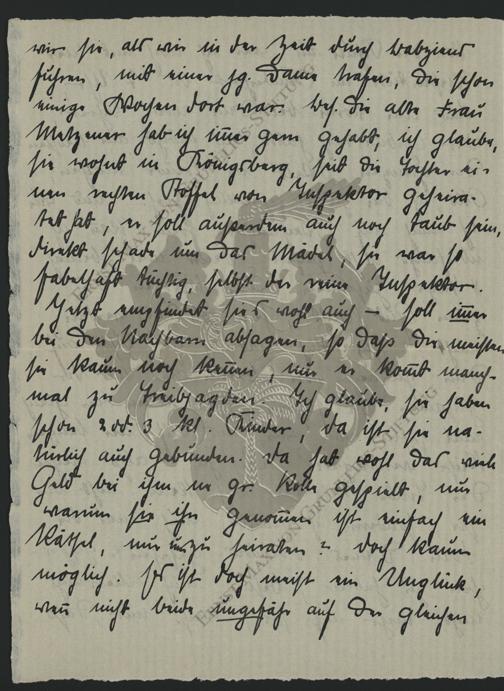 wir sie, als wir in der Zeit durch Labziens
fuhren, mit einer jg. Dame trafen, die schon
einige Wochen dort war. Bes. die alte Frau
Metzener hab ich im̄er gern gehabt, ich glaube,
sie wohnt in Königsberg, seit die Tochter ei-
nen rechten Stoffel von Inspektor geheira-
tet hat, er soll außerdem auch noch taub sein,
direkt schade um das Mädel, sie war so
fabelhaft tüchtig, selbst der reine Inspektor.
Jetzt empfindet sie's wohl auch – soll im̄er
bei den Nachbarn absagen, so daß die meisten
sie kaum noch ken̄en, nur er kom̄t manch-
mal zu Treibjagden. Ich glaube, sie haben
schon 2 od. 3 kl. Kinder, da ist sie na-
türlich auch gebunden. Da hat wohl das viele
Geld bei ihm ne gr. Rolle gespielt, nur
warum sie ihn genom̄en ist einfach ein
Rätsel, nur um zu heiraten? doch kaum
möglich. Es ist doch meist ein Unglück,
wen̄ nicht beide ungefähr auf der gleichen